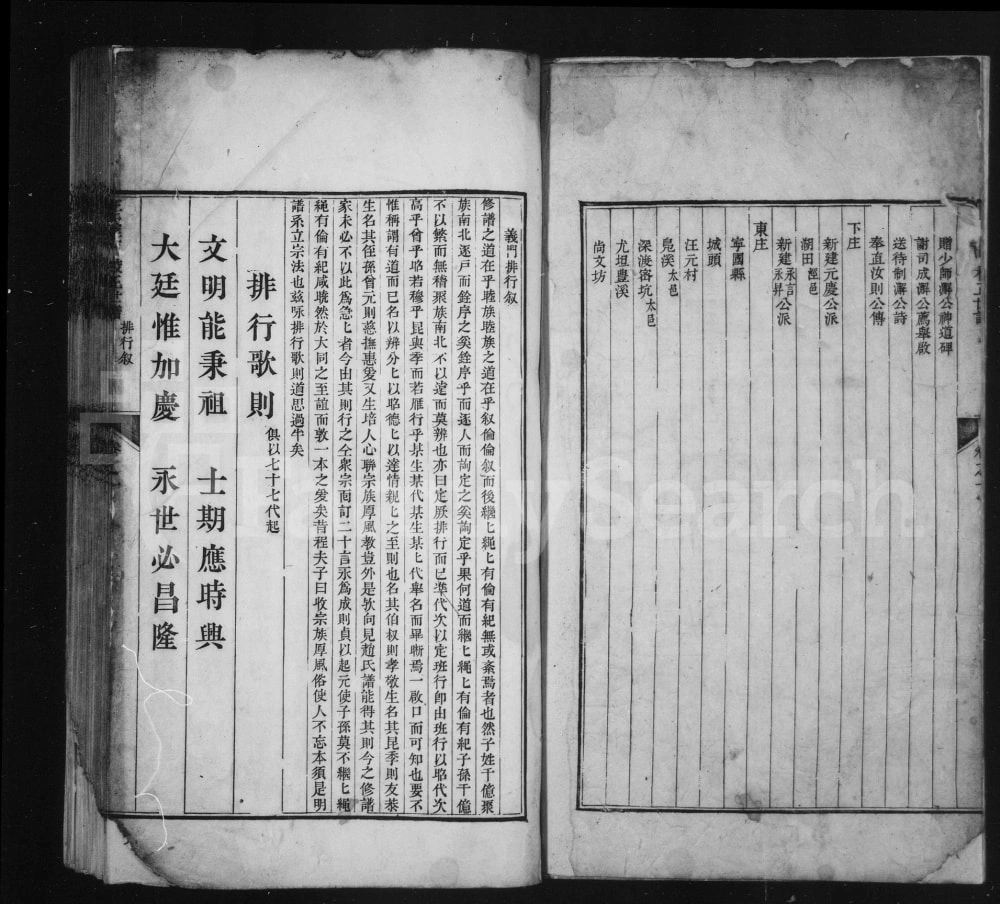 贈少師澥公神道碑
謝司成澥公薦舉啟
送待制澥公詩
奉直汝則公傳
下庄
新建元慶公派
湖田涇邑
新建永言永昇公派
東庄
寧國縣
城頭
汪元村
皂溪太邑
深渡窖坑太邑
尤坦豊溪
尚文坊
義門排行叙
修譜之道在乎睦族睦族之道在乎叙倫倫叙而後繼〻繩〻有倫有紀無或紊焉者也然子姓千億聚
族南北逐戸而銓序之奚銓序乎而逐人而詢定之奚詢定乎果何道而繼〻繩〻有倫有紀子孫千億
不以繁而無稽聚族南北不以遠而莫辨也亦曰定厥排行而已準代次以定班行卽由班行以昭代次
高乎曾乎昭若穆乎昆與季而若雁行乎某生某代某生某〻代舉名而畢晰焉一啟口而可知也要不
惟稱謂有道而已名以辨分〻以昭德〻以達情親〻之至則也名其伯叔則孝敬生名其昆季則友恭
生名其侄孫曾元則慈撫惠愛又生培人心聯宗族厚風教豈外是欤向見趙氏譜能得其則今之修譜
家未必不以此爲急〻者今由其則行之全衆宗而訂二十言永爲成則貞以起元使子孫莫不繼〻繩
繩有倫有紀咸曉然於大同之至誼而敦一本之愛矣昔程夫子曰收宗族厚風俗使人不忘本須是明
譜系立宗法也兹咏排行歌則道思過半矣
排行歌則 俱以七十七代起
文明能秉祖 士期應時興
大廷惟加慶 永世必昌隆
排行叙